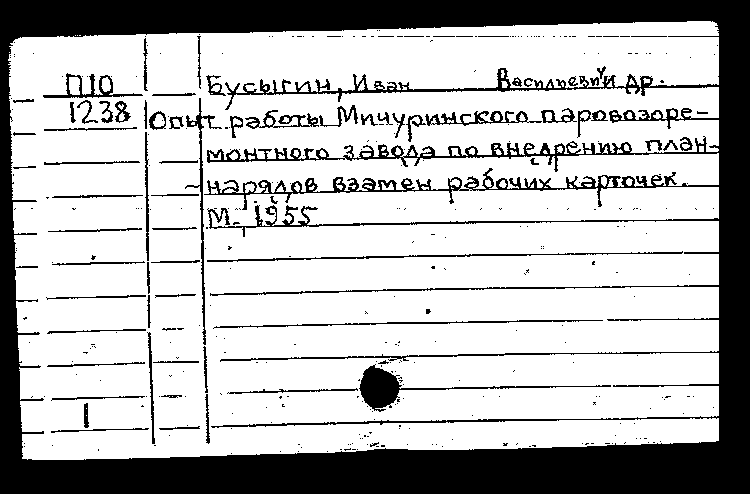 П10 Бусыгин, Иван Васильевич и др.
1238 Опыт работы Мичуринского паровозоре-
монтного завода по внедрению план-
-нарядов взамен рабочих карточек.
М., 1955
1